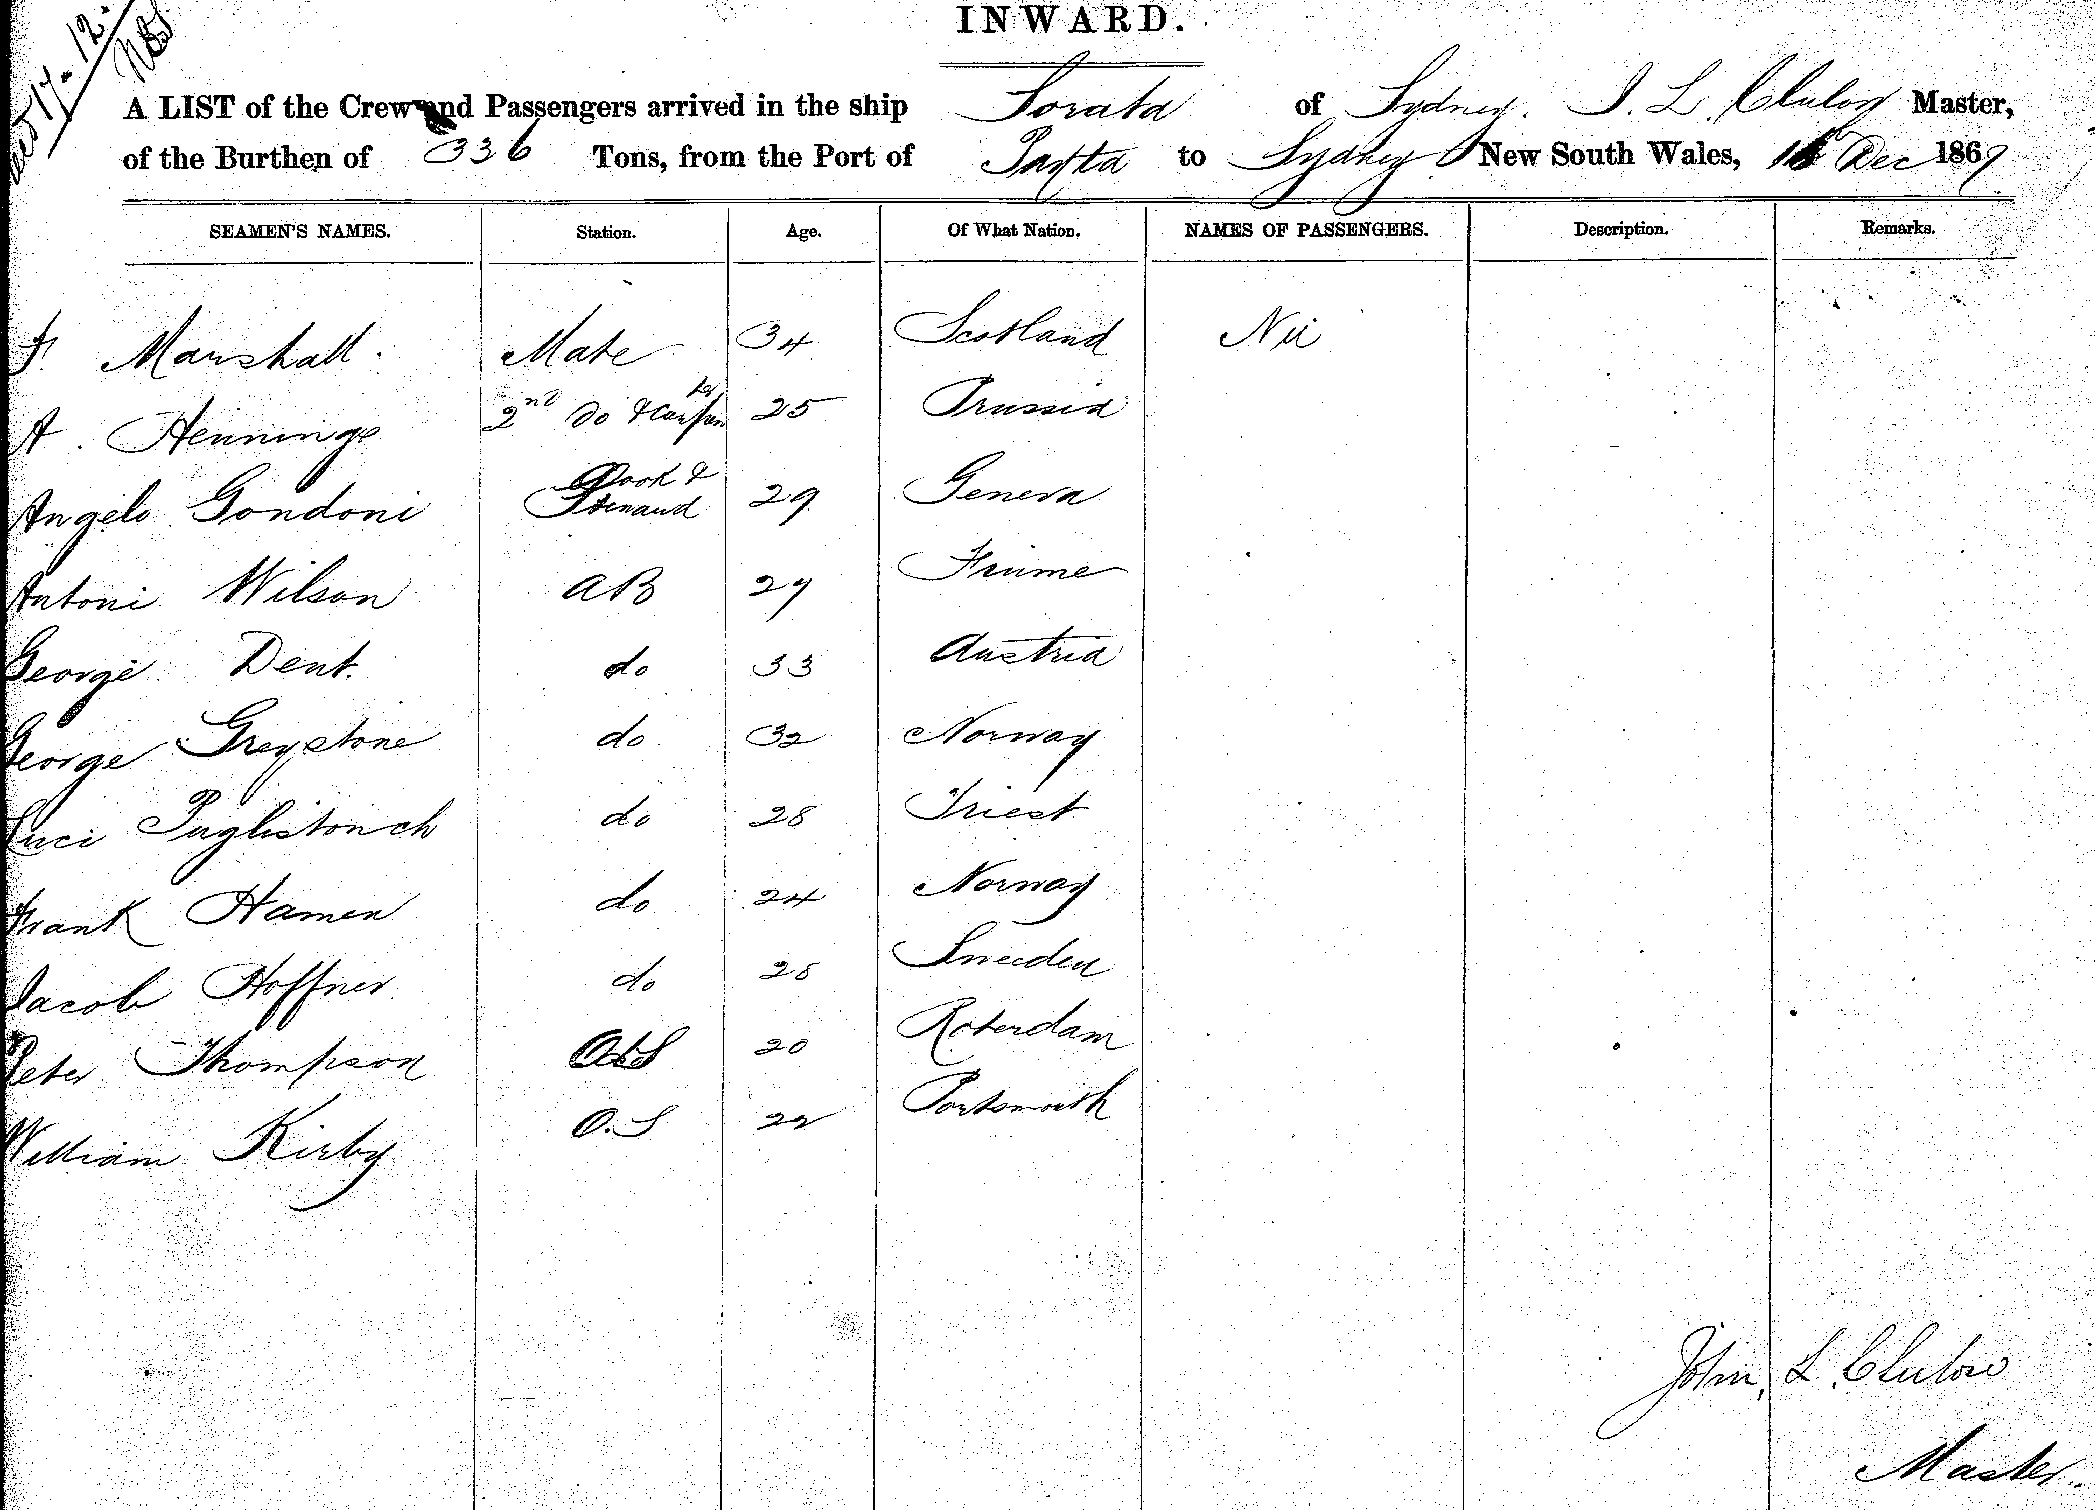 INWARD.
A LIST of the Crew and Passengers arrived in the ship Sorata of Sydney. J. L. Clulow Master,
of the Burthen of 336 Tons, from the Port of to Sydney New South Wales, 16 Dec 1867
SEAMEN'S NAMES. Station. Age. Of What Nation. NAMES OF PASSENGERS. Description. Remarks.
F. Marshall. Mate 34 Scotland Nil
A. Hennings 2nd Do & Carpenter 25 Prussia
Angelo Gondoni Cook & Steward 29 Geneva
Antoni Wilson AB 27 Fiume
George Dent. do 33 Austria
George Greystone do 32 Norway
Luci do 28 Triest
Frank Hamen do 24 Norway
Jacob Hoffner do 28 Sweeden
Peter Thompson 20 Roterdam
William Kirby O.S 22 Portsmouth
John, L. Clulow
Master.